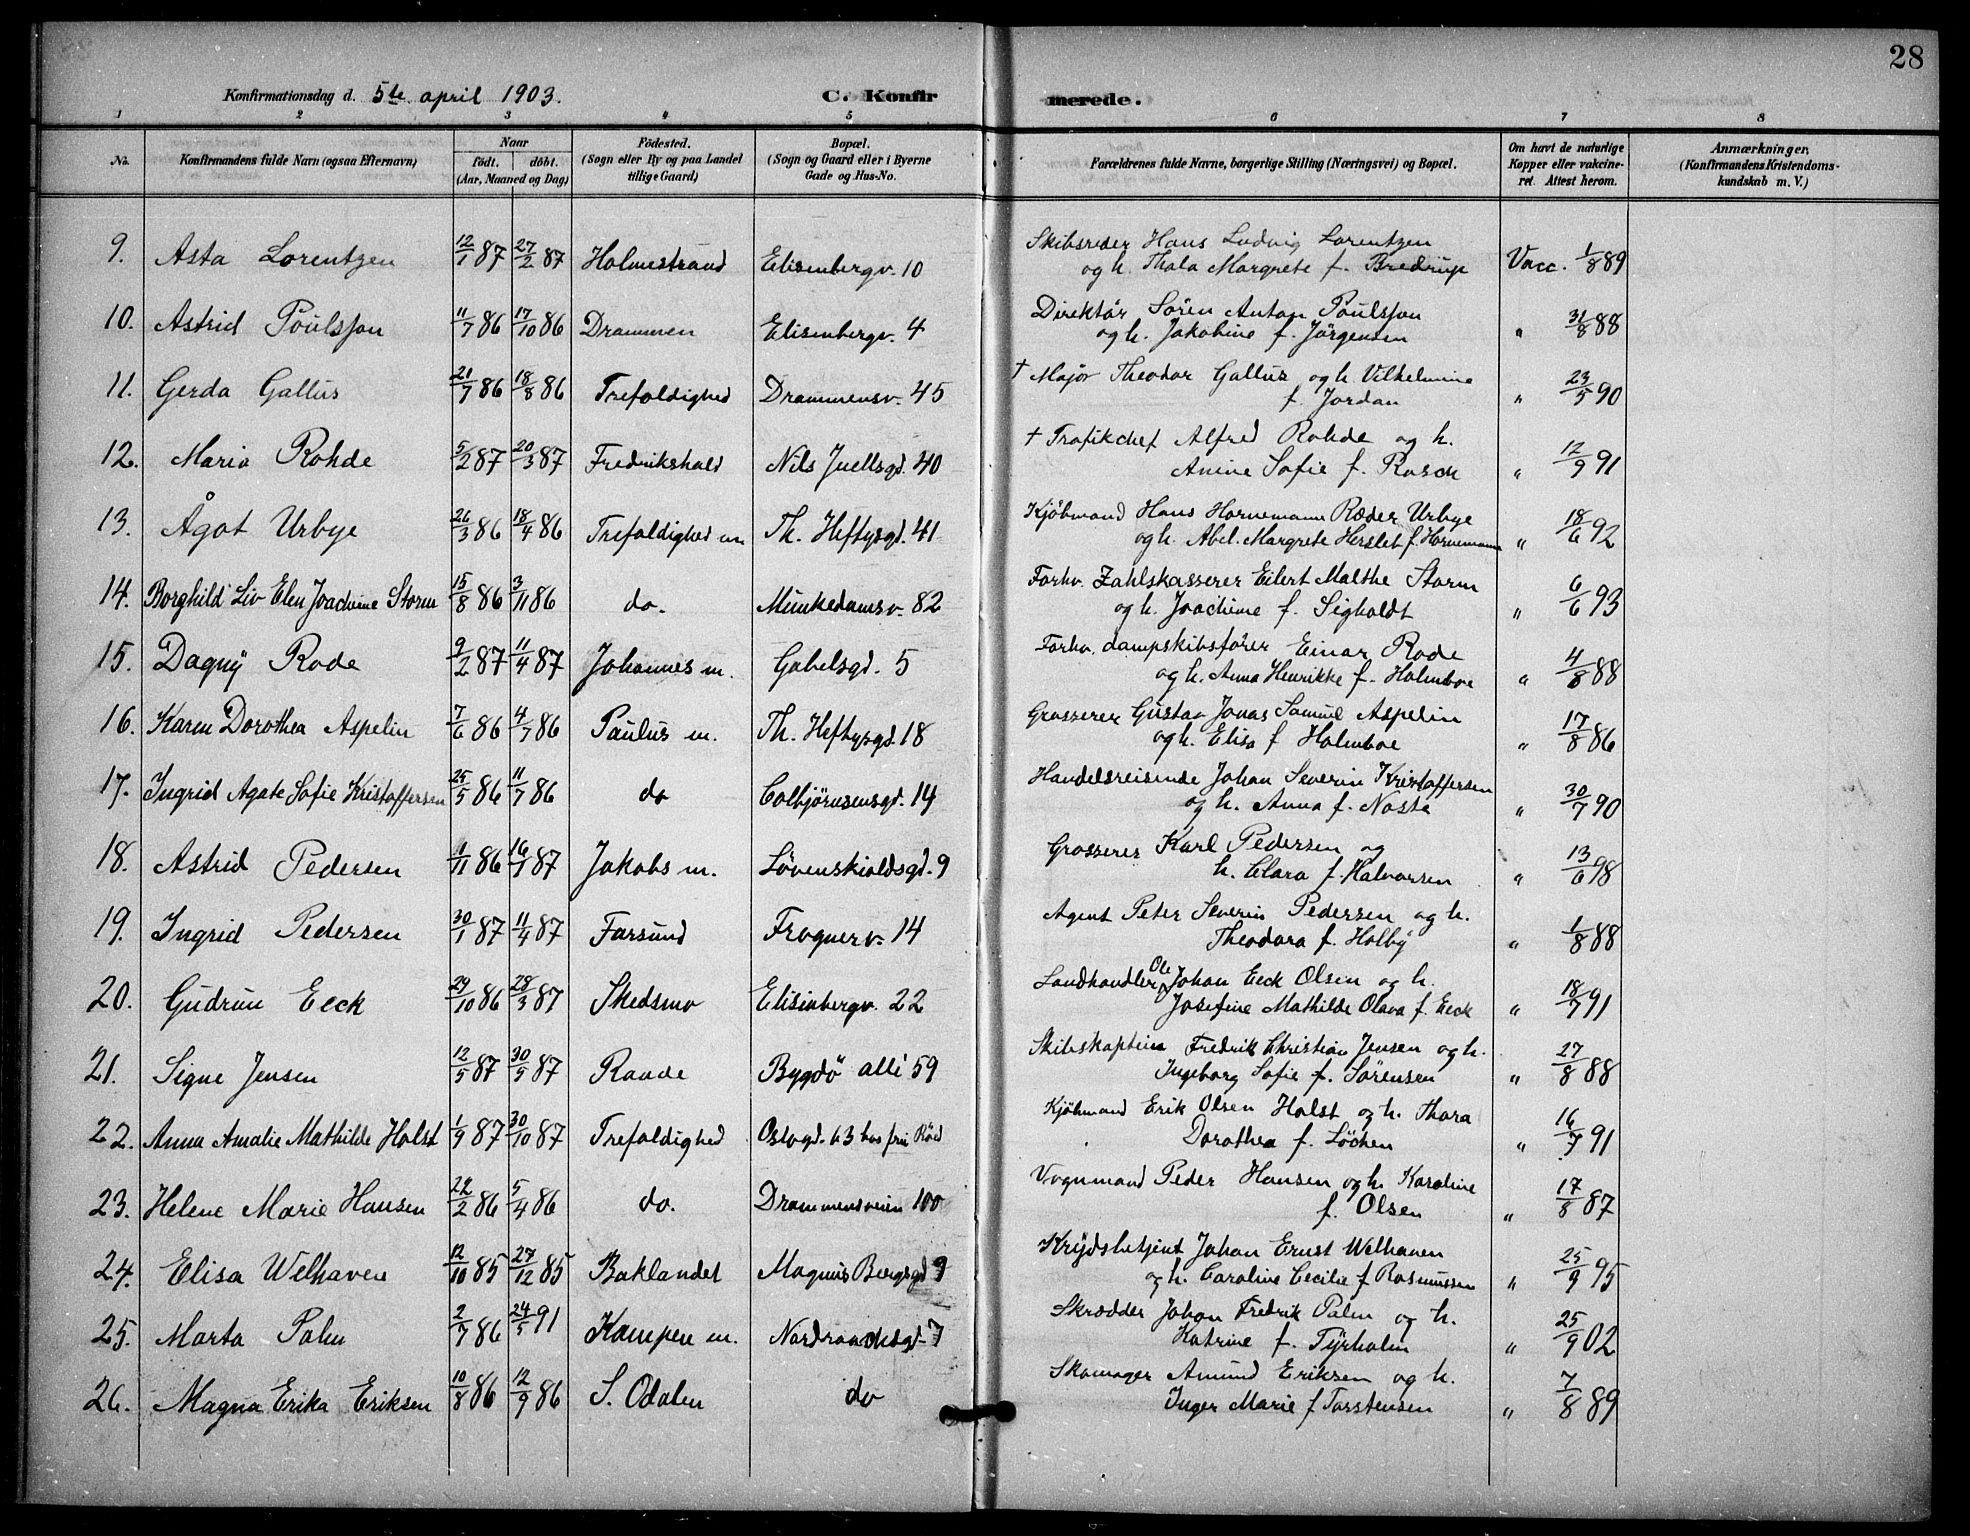 28
Konfirmationsdag d. 5te april 1903.
C. Konfirmerede.
1 2 3 4 5 6 7 8
No. Konfirmandens fulde Navn (ogsaa Efternavn) Naar födt. döbt. (Aar, Maaned og Dag) Födested. (Sogn eller By og paa Landet tillige Gaard) Bopæl. (Sogn og Gaard eller i Byerne Gade og Hus-No. Forældrenes fulde Navne, borgerlige Stilling (Næringsvei) og Bopæl. Om havt de naturlige Kopper eller vakcineret. Attest herom. Anmærkninger. (Konfirmandens Kristendomskundskab m. V.)
9. Asta Lorentzen 12/1 87 27/2 87 Holmestrand Elisenbergv. 10 Skibsreder Hans Ludvig Lorentzen
og h. Thala Margrete f. Bredrup Vacc. 1/8 89
10. Astrid Poulsson 11/7 86 17/10 86 Drammen Elisenbergv. 4 Direktör Sören Anton Poulsson
og h. Jakobine f. Jörgensen " 31/8 88
11. Gerda Gallus 21/7 86 18/8 86 Trefoldighed Drammensv. 45 † Major Theodor Gallus og h Vilhelmine
f. Jordan " 23/5 90
12. Maria Rohde 5/2 87 20/3 87 Fredrikshald Nils Juellsgd. 40 † Trafikchef Alfred Rohde og h.
Anine Sofie f. Rasch " 12/9 91
13. Ågot Urbye 26/3 86 18/4 86 Trefoldighed m Th. Heftysgd. 41 Kjöbmand Hans Hornemann Ræder Urbye
og h. Abel. Margrete Herslet f. Hornemann " 18/6 92
14. Borghild Liv Elen Joachine Storm 15/8 86 3/11 86 do. Munkedamsv. 82 Forhv. Zahlskasserer Eilert Malthe Storm
og h. Joachine f. Sigholdt " 6/6 93
15. Dagny Rode 9/2 87 11/4 87 Johannes m. Gabelsgd. 5 Forhv. dampskibsförer Einar Rode
og h. Anna Henrikke f. Holmboe " 4/8 88
16. Karen Dorothea Aspelin 7/6 86 4/7 86 Paulus m. Th. Heftysgd 18 Grosserer Gustav Jonas Samuel Aspelin
og h. Elisa f Holmboe " 17/8 86
17. Ingrid Agate Sofie Kristoffersen 25/5 86 11/7 86 do Colbjörnsensgd. 14 Handelsreisende Johan Severin Kristoffersen
og h. Anna f. Nosta " 30/7 90
18. Astrid Pedersen 1/11 86 16/1 87 Jakobs m. Lövenskioldsgd. 9 Grosserer Karl Pedersen og
h. Clara f. Halvorsen " 13/6 98
19. Ingrid Pedersen 30/1 87 11/4 87 Farsund Frognerv. 14 Agent Peter Severin Pedersen og h.
Theodora f. Holby " 1/8 88
20. Gudrun Eeck 29/10 86 28/3 87 Skedsmo Elisinbergv. 22 Landhandler Ole Johan Eeck Olsen og h.
Josefine Mathilde Olava f. Eeck " 18/7 91
21. Signe Jensen 12/5 87 30/5 87 Raade Bygdö alli 59 Skibskaptein Fredrik Christian Jensen og h.
Ingeborg Sofie f. Sörensen " 27/8 88
22. Anna Amalie Mathilde Holst 1/9 87 30/10 87 Trefoldighed Oslogd. 63 hos fru Röed Kjöbmand Erik Olsen Holst og h. Thora
Dorothea f. Löchen " 16/7 91
23. Helene Marie Hansen 22/2 86 5/4 86 do. Drammensveien 100 Vognmand Peder Hansen og h. Karoline
f. Olsen " 17/8 87
24. Elisa Welhaven 12/10 85 27/12 85 Baklandet Magnus Bergsgd 9 Krydsbetjent Johan Ernst Welhaven
og h. Caroline Cecilie f Rasmussen " 25/9 95
25. Marta Palm 2/7 86 24/5 91 Kampen m. Nordraachsgd. 7 Skrædder Johan Fredrik Palm og h.
Katrine f. Tyrholm " 25/9 02
26. Magna Erika Eriksen 10/8 86 12/9 86 S. Odalen do Skomager Amund Eriksen og h.
Inger Marie f Torstensen " 7/8 89